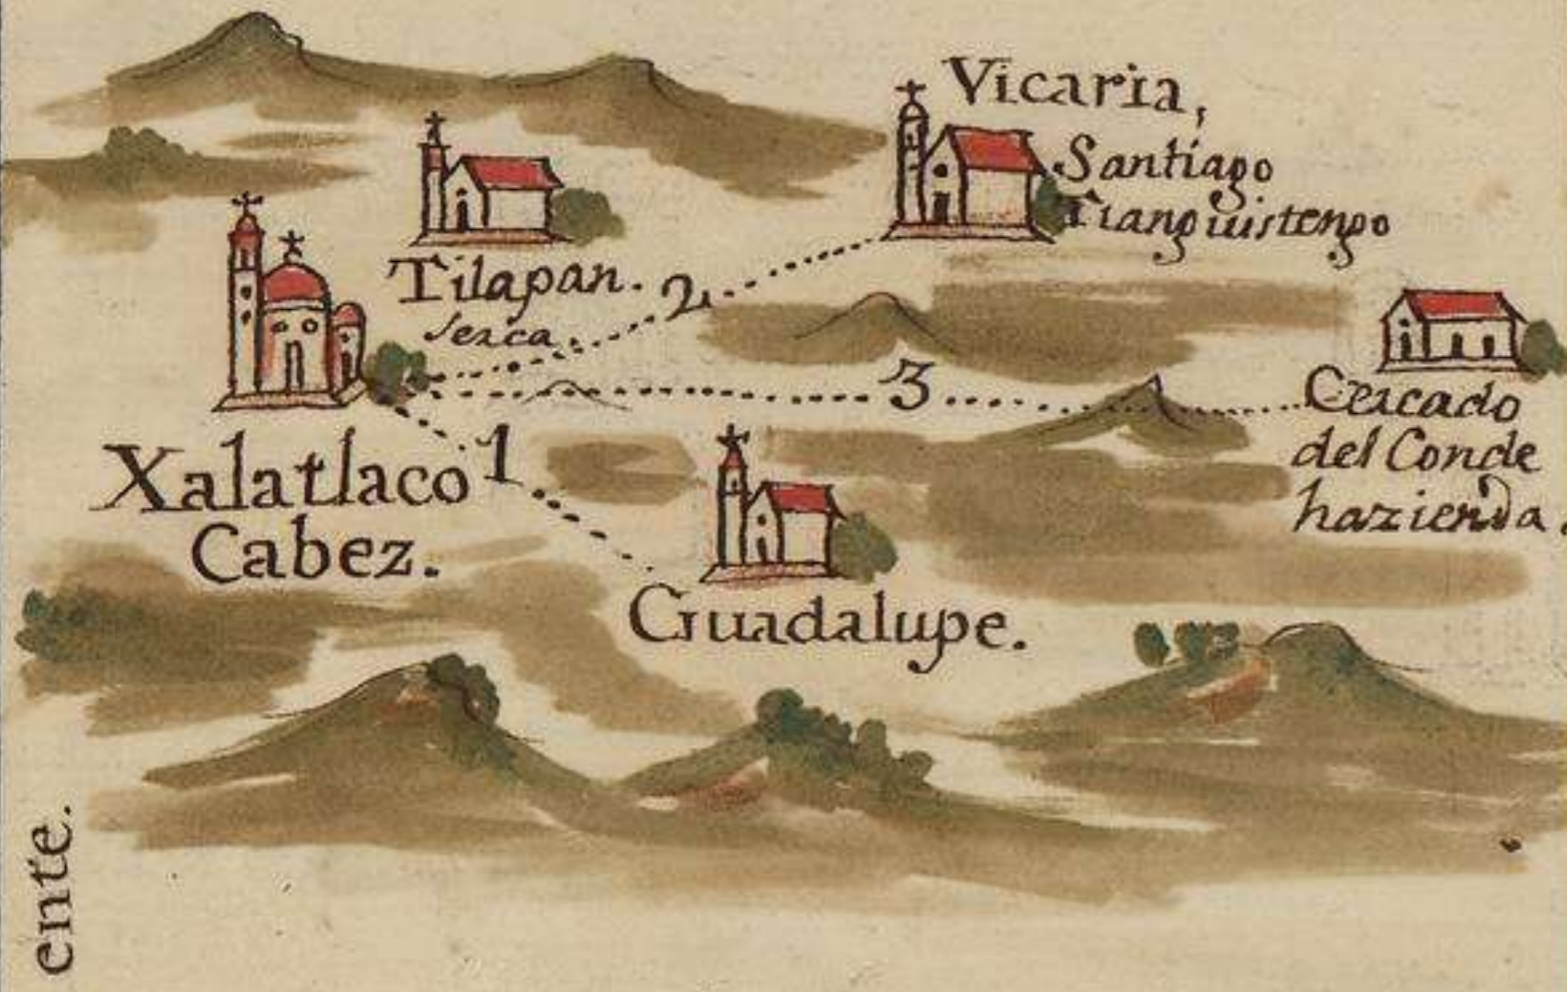 Vicaria,
Santiago
Tianguistengo
Tilapan.
serca.
2
3
Cercado
del Conde
hazienda.
1
Xalatlaco
Cabez.
Guadalupe.
ente.